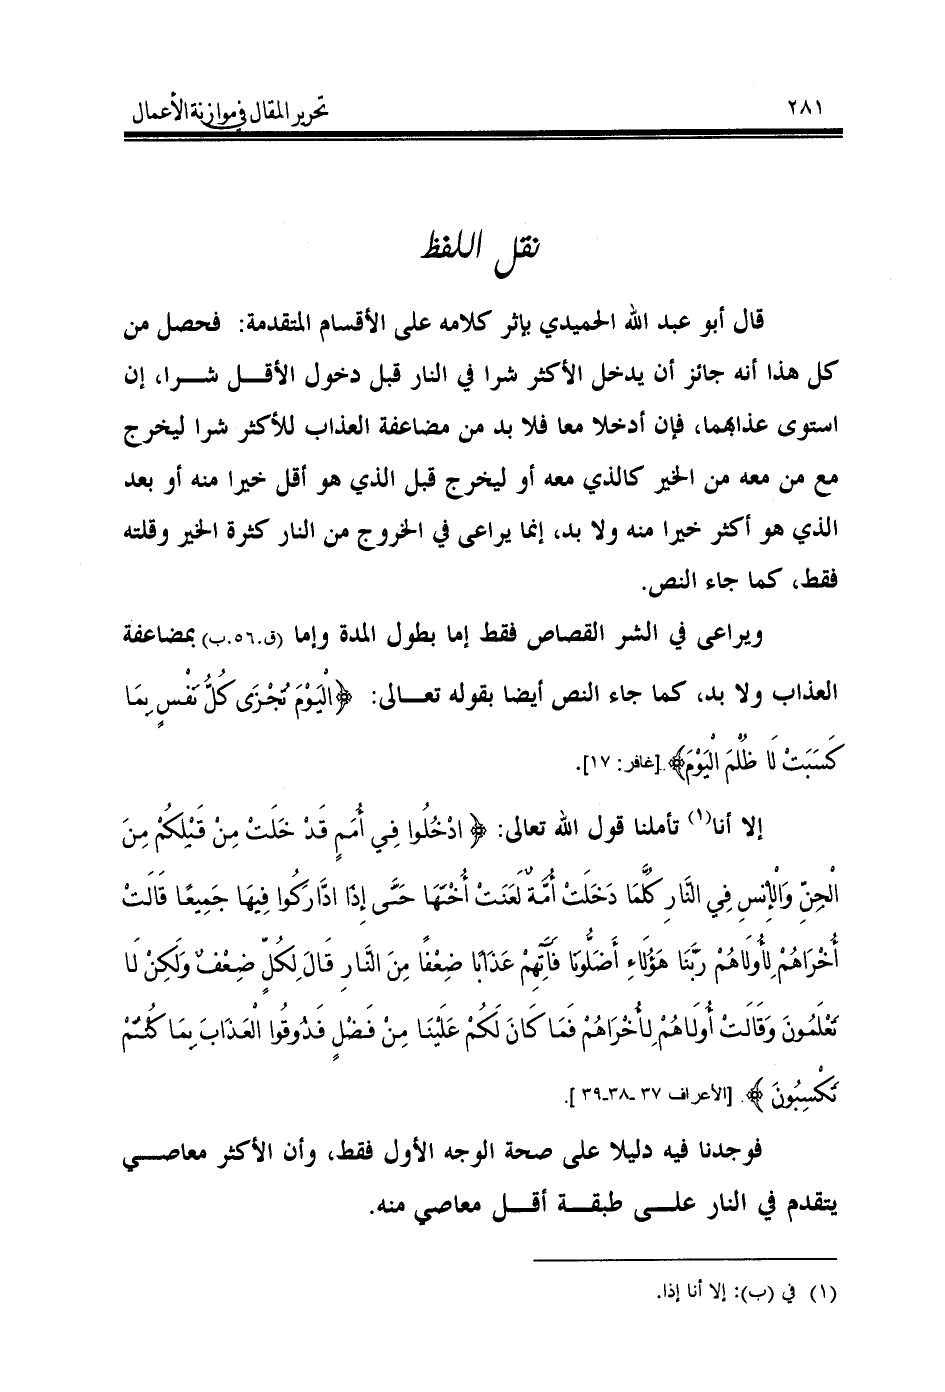 ٢٨١
تحرير المقال في موازنة الأعمال
نقل اللفظ
قال أبو عبد الله الحميدي بإثر كلامه على الأقسام المتقدمة: فحصل من
كل هذا أنه جائز أن يدخل الأكثر شرا في النار قبل دخول الأقل شرا، إن
استوى عذابهما، فإن أدخلا معا فلا بد من مضاعفة العذاب للأكثر شرا ليخرج
مع من معه من الخير كالذي معه أو ليخرج قبل الذي هو أقل خيرا منه أو بعد
الذي هو أكثر خيرا منه ولا بد، إنما يراعى في الخروج من النار كثرة الخير وقلته
فقط، كما جاء النص.
ويراعى في الشر القصاص فقط إما بطول المدة وإما (ق.٥٦.ب) بمضاعفة
العذاب ولا بد، كما جاء النص أيضا بقوله تعالى: ﴿الْيَوْمَ تُجْزَى كُلُّ نَفْسٍ بِمَا
كَسَبَتْ لَا ظُلْمَ الْيَوْمَ﴾ [غافر: ١٧].
إلا أنا(١) تأملنا قول الله تعالى: ﴿ ادْخُلُوا فِي أُمَمٍ قَدْ خَلَتْ مِنْ قَبْلِكُمْ مِنَ
الْجِنِّ وَالْإِنسِ فِي النَّارِ كُلَّمَا دَخَلَتْ أُمَّةٌ لَعَنَتْ أُخْتَهَا حَتَّى إِذَا ادَّارَكُوا فِيهَا جَمِيعًا قَالَتْ
أُخْرَاهُمْ لِأُولَاهُمْ رَبَّنَا هَؤُلَاءِ أَضَلُّونَا فَآتِهِمْ عَذَابًا ضِعْفًا مِنَ النَّارِ قَالَ لِكُلٍّ ضِعْفٌ وَلَكِنْ لَا
تَعْلَمُونَ وَقَالَتْ أُولَاهُمْ لِأُخْرَاهُمْ فَمَا كَانَ لَكُمْ عَلَيْنَا مِنْ فَضْلٍ فَذُوقُوا الْعَذَابَ بِمَا كُنْتُمْ
تَكْسِبُونَ ﴾. [الأعراف ٣٧ـ٣٨ـ٣٩ ].
فوجدنا فيه دليلا على صحة الوجه الأول فقط، وأن الأكثر معاصي
يتقدم في النار على طبقة أقل معاصي منه.
(١) في (ب): إلا أنا إذا.